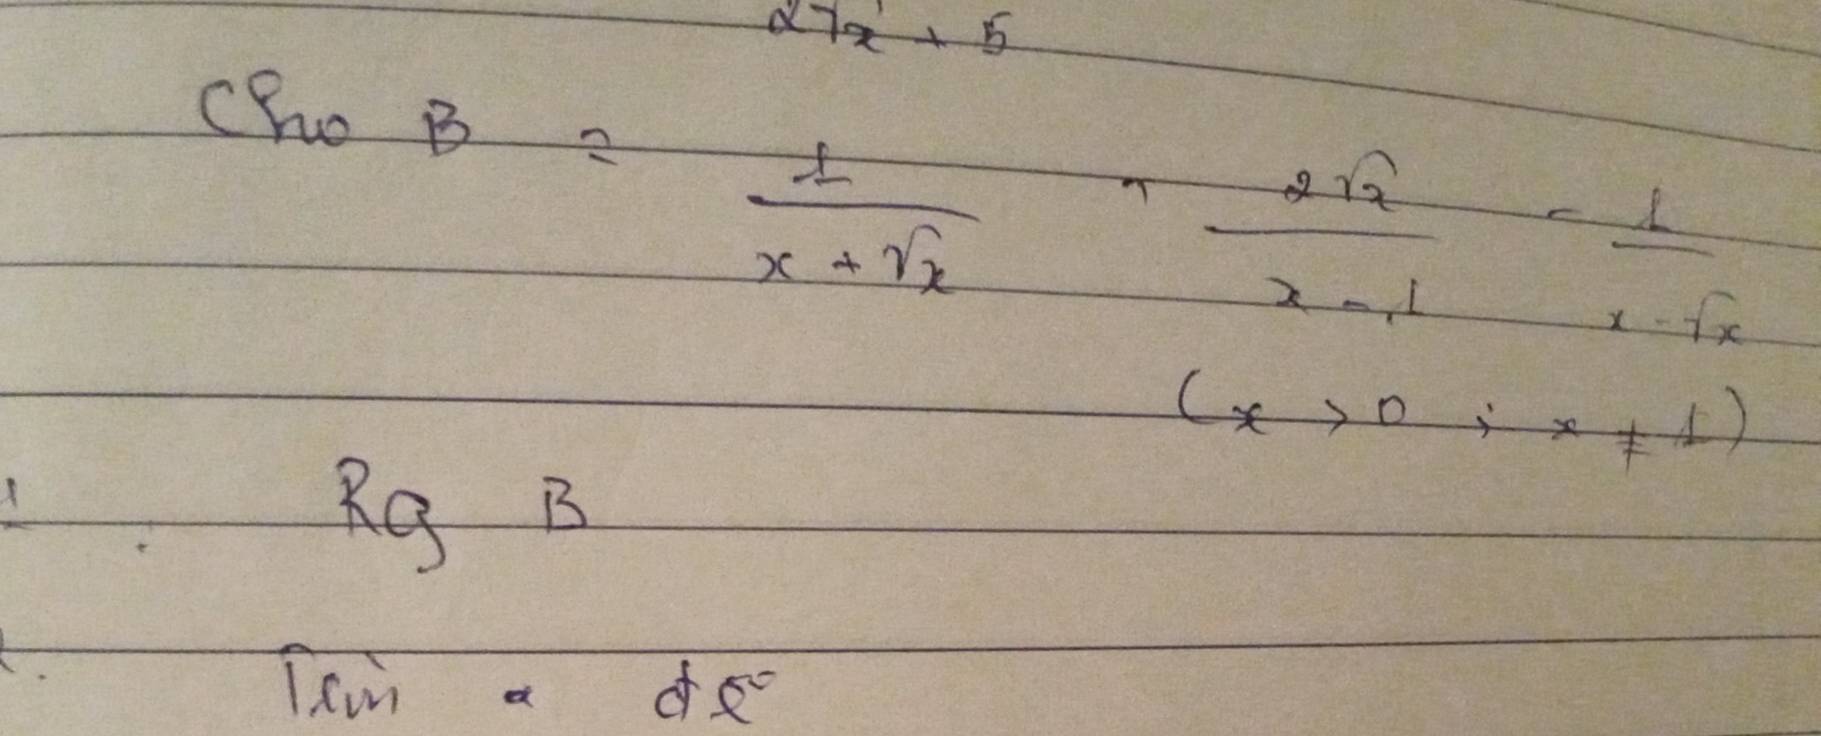 2√x + 5
Cho B = 1/(x + √x) + 2√x/(x - 1) - 1/(x - √x)
(x > 0 ; x ≠ 1)
1 Rg B
2. Tìm x để